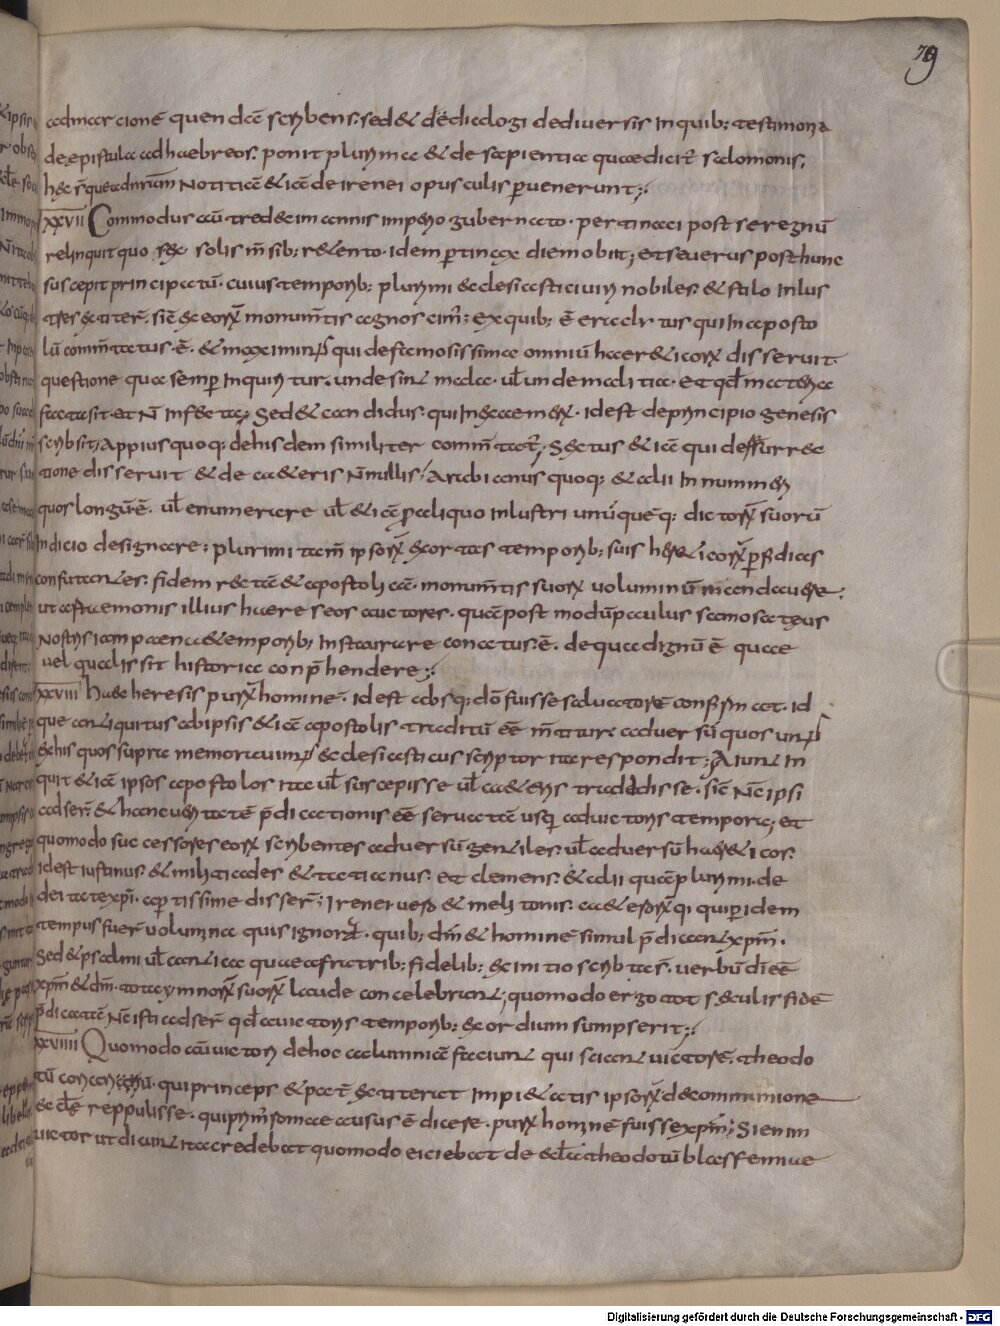 79
admarcionē quendā scribens. sed & dedialogi dediuersis Inquib; testimonia
deepistula adhaebreos. ponit plurima & de sapientia quaedicit̄ salomonis.
hęc s̄ quaeadnr̄am Notitiā & iā de irenei opusculis ꝑuenerunt;
XXVII Commodus cū tredecim annis imperio gubernato. pertinaci post se regnū
relinquit quo sex solis m̄sib; retento. idem ꝑtinax diem obiit; et seuerus posthunc
suscepit principatū. cuius temporib; plurimi ecclesiastici uiri nobiles & stilo Inlus
tres extiter̄. sic ex eorꝝ monum̄tis agnoscim;. exquib; ē eraclitus qui In aposto
lū comm̄tatus ē. & maximinus qui defamosissima omniū hereticorꝝ disseruit
questione quae semꝑ Inquiritur. unde sint mala. ul̄ unde malitia. et qd̄ materia
facta sit. et N̄ Infecta; Sed & candidus. qui In exaemerꝝ. id est deprincipio genesis
scribsit; appius quoq; dehisdem similiter comm̄tat̄; Sextus & iā qui deresurrec
tione disseruit & de ceteris N̄nullis; Arabianus quoq; & alii Innumeri
quos longū ē. ul̄ enumerare ul̄ & iā ꝑ aliquo Inlustri unūquēq; dictorꝝ suorū
Indicio designare; plurimi tam̄ ipsorꝝ exortas temporib; suis hereticorꝝ ꝑfidias
confutantes. fidem rectā & apostolicā. monum̄tis suorꝝ uoluminū mandauer̄;
ut artaemonis illius haereseos auctores. quā post modū paulus samosateus
Nostris iam paene temporib; Instaurare conatus ē. de qua dignū ē quae
uel qualis sit historia conp̄hendere;
XXVIII hac heresis purꝝ hominē. id est absq; dō fuisse saluatorē confirmat. id
que antiquitus abipsis & iā apostolis traditū eē m̄titur. aduersū quos unus
exhis quos supra memorauimus ecclesiasticus scriptor ita respondit; Aiunt In
quit & iā ipsos apostolos ita ul̄ suscepisse ul̄ ceteris tradidisse. sic Nc̄ ipsi
adser̄. & hanc ueritatē p̄dicationis eē seruatā usq; aduictoris tempora; et
quomodo successores eorꝝ scribentes aduersū gentiles. ul̄ aduersū hereticos.
id est iustinus. & miltiades & tatianus. et clemens. & alii quā plurimi. de
deitate xp̄i. aꝑtissime disser̄; Irenei uero & melitonis. & ceterorꝝ qui ꝑ idem
tempus fuer̄ uolumina quis ignorat. quib; dm̄ & hominē simul p̄dicant xpm̄.
Sed & psalmi ul̄ cantica quae a fratrib; fidelib; ex initio scribta s̄. uerbū di eē
xpm̄ & dm̄. tota ymnorꝝ suorꝝ laude concelebrant; quomodo ergo tot seculis fidē
p̄dicatā Nc̄ isti adser̄ qd̄ auictoris temporib; exordium sumpserit;
XXVIIII Quomodo aū uictori dehoc calumniā faciunt qui sciant uictorē. theodo
tū coriariū. qui princeps & pat̄ extiterat Impietatis ipsorꝝ decommunione
ecclę reppulisse. quiprim; romae ausus ē dicere. purꝝ hominē fuisse xpm̄; Si enim
uictor ut dicunt ita credebat quomodo eiciebat de eccl̄a theodotū blasfemiae
Digitalisierung gefördert durch die Deutsche Forschungsgemeinschaft - DFG